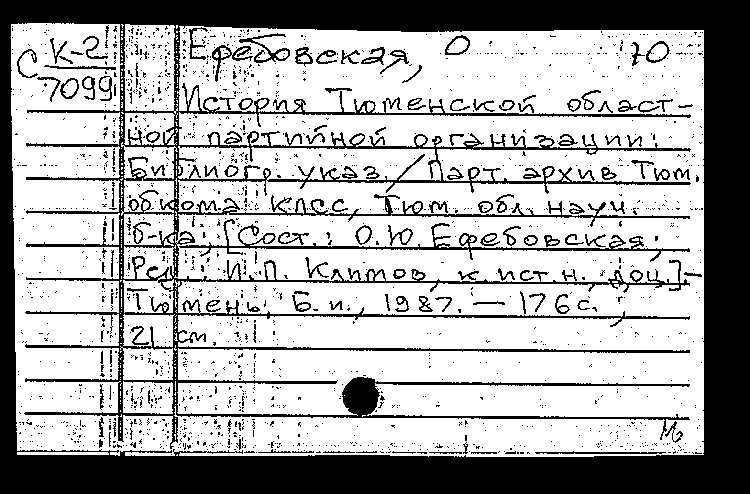 С К-2 Ефебовская, О 10
7099
История Тюменской област-
ной партийной организации:
Библиогр. указ. / Парт. архив Тюм.
обкома КПСС, Тюм. обл. науч.
б-ка; [Сост.: О.Ю. Ефебовская;
Ред.: И.П. Климов, к.ист.н., доц.]-
Тюмень, Б.и., 1987. — 176 с.;
21 см.